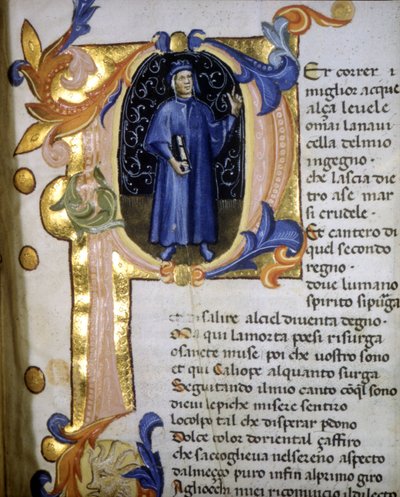 Er correr i
miglior acque
alça le uele
omai la naui
cella del mio
ingegno·
che lascia die
tro a se mar
si crudele·
Et cantero di
quel secondo
regno·
doue lumano
spirito si purga
et di salire al ciel diuenta degno·
Ma qui la morta poesi risurga
o sancte muse poi che uostro sono
et qui Caliope alquanto surga
Seguitando il mio canto cō ql sono
di cui le piche misere sentiro
lo colpo tal che disperar pdono
Dolce color doriental çaffiro
che saccoglieua nel sereno aspecto
dal meçço puro infin al primo giro
Agliocchi miei ricomincio dilecto